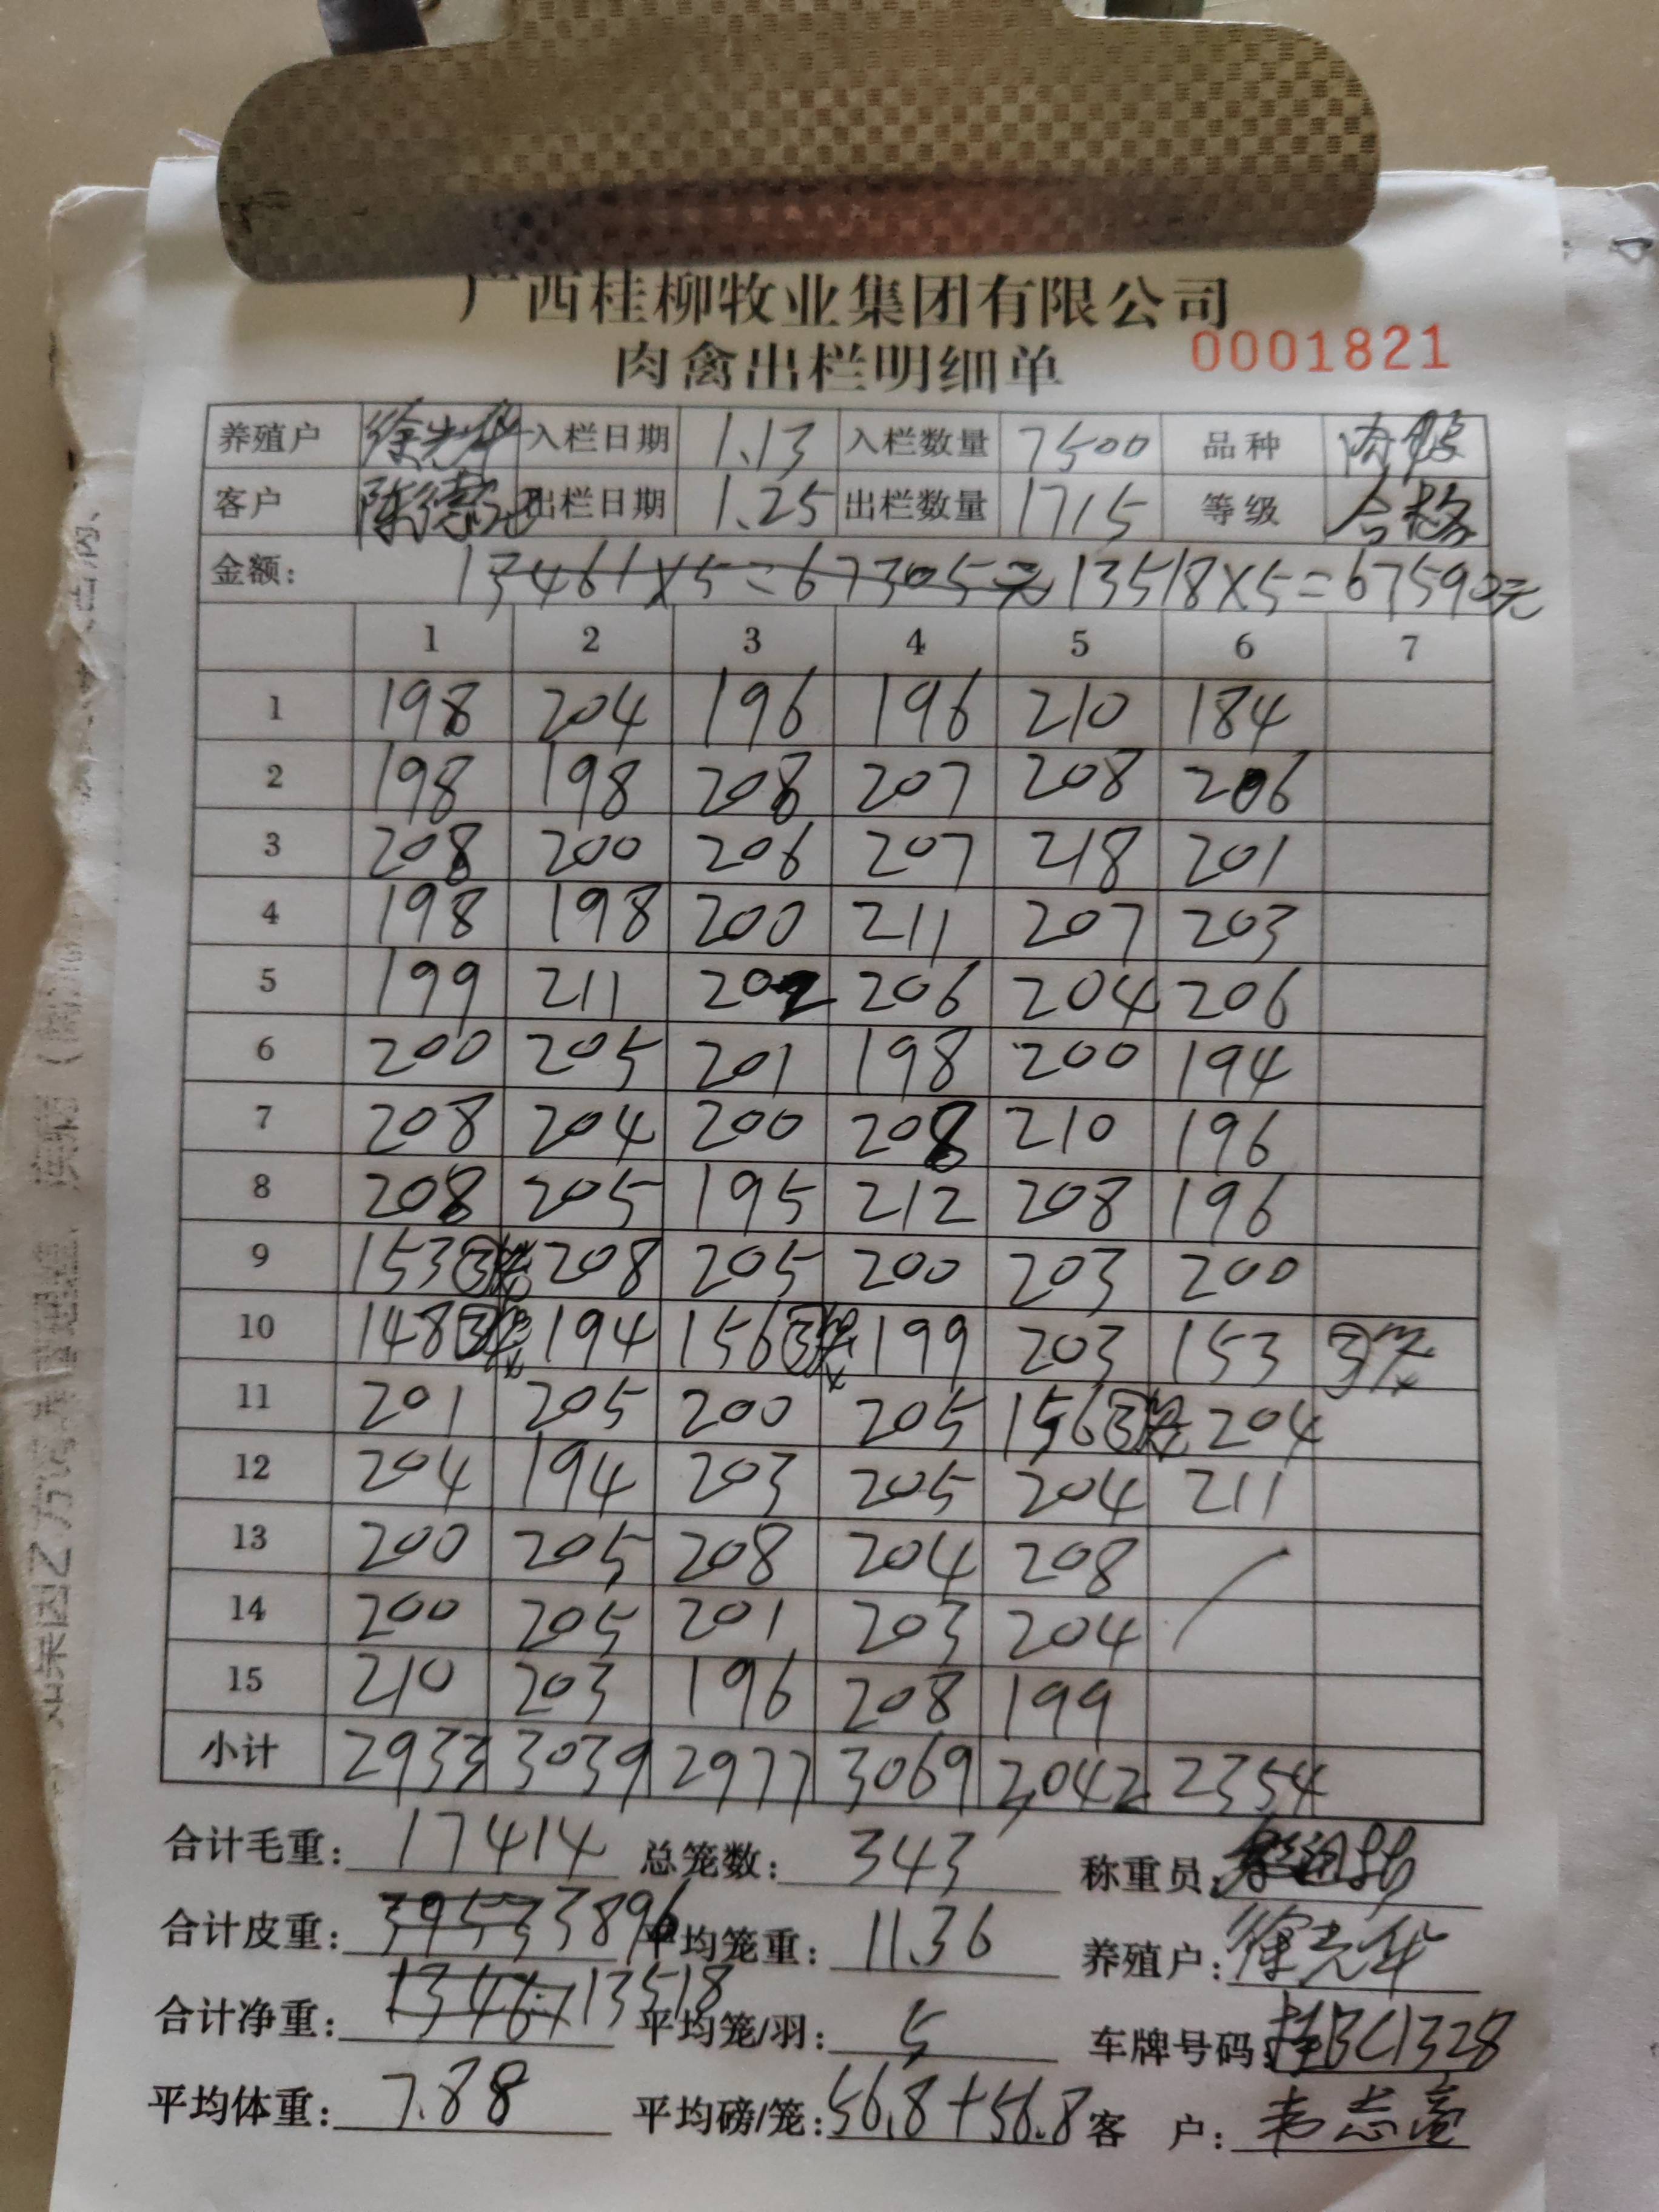 广西桂柳牧业集团有限公司
肉禽出栏明细单 0001821
养殖户 徐光华 入栏日期 1.13 入栏数量 7500 品种 肉鸭
客户 陈德 出栏日期 1.25 出栏数量 1715 等级 合格
金额: 13461×5=67305元 13518×5=67590元
1 2 3 4 5 6 7
1 198 204 196 196 210 184
2 198 198 208 207 208 206
3 208 200 206 207 218 201
4 198 198 200 211 207 203
5 199 211 202 206 204 206
6 200 205 201 198 200 194
7 208 204 200 208 210 196
8 208 205 195 212 208 196
9 153③笼 208 205 200 203 200
10 148③笼 194 156③笼 199 203 153 ③笼
11 201 205 200 205 156③笼 204
12 204 194 203 205 204 211
13 200 205 208 204 208
14 200 205 201 203 204
15 210 203 196 208 199
小计 2933 3039 2977 3069 3042 2354
合计毛重: 17414 总笼数: 343 称重员:
合计皮重: 3953 3896 平均笼重: 11.36 养殖户: 徐光华
合计净重: 13461 13518 平均笼/羽: 5 车牌号码: 桂BC1328
平均体重: 7.88 平均磅/笼: 56.8+56.8 客 户: 韦志